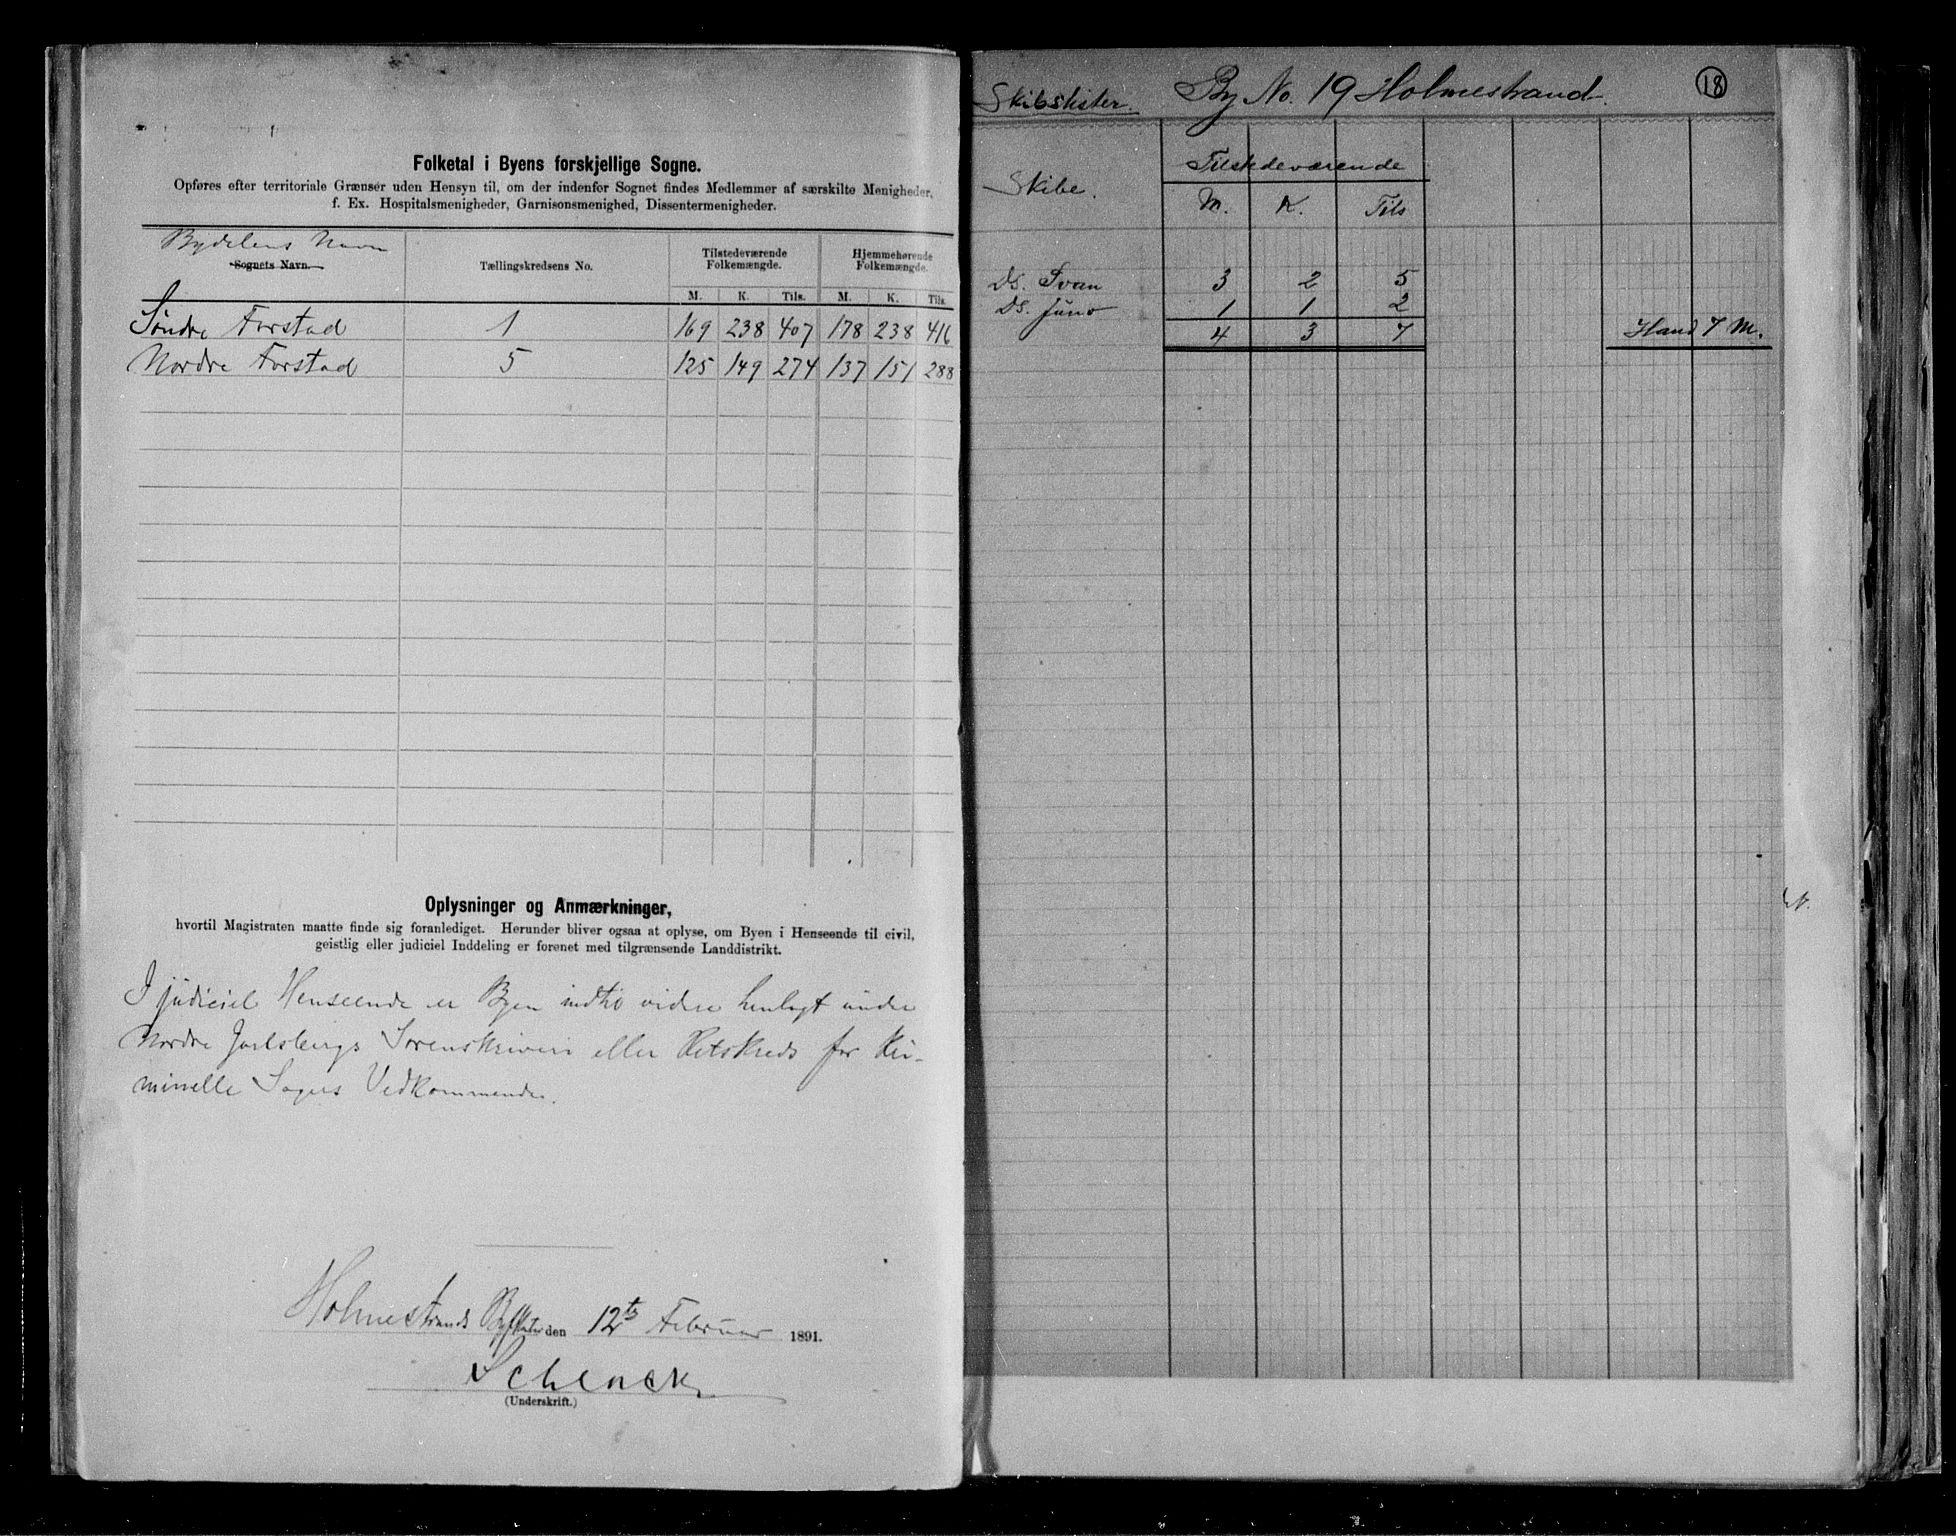 Folketal i Byens forskjellige Sogne.
Opføres efter territoriale Grænser uden Hensyn til, om der indenfor Sognet findes Medlemmer af særskilte Menigheder,
f. Ex. Hospitalsmenigheder, Garnisonsmenighed, Dissentermenigheder.
Bydelens Navn
Sognets Navn. Tællingskredsens No. Tilstedeværende Folkemængde. Hjemmehørende Folkemængde.
M. K. Tils. M. K. Tils.
Søndre Forstad 1 169 238 407 178 238 416
Nordre Forstad 5 125 149 274 137 151 288
Oplysninger og Anmærkninger,
hvortil Magistraten maatte finde sig foranlediget. Herunder bliver ogsaa at oplyse, om Byen i Henseende til civil,
geistlig eller judiciel Inddeling er forenet med tilgrænsende Landdistrikt.
I judiciel Henseende er Byen indtil videre henlagt under
Nordre Jarlsbergs Sorenskriveri eller Retskreds for Kri-
minelle Sagers Vedkommende.
Holmestrands Byfoged den 12te Februar 1891.
Schenck
(Underskrift.)
Skibslister. By No. 19 Holmestrand. 18
Skibe. Tilstedeværende
M. K. Tils
DS. Svan 3 2 5
DS. Juno 1 1 2
4 3 7 Hand 7 M.